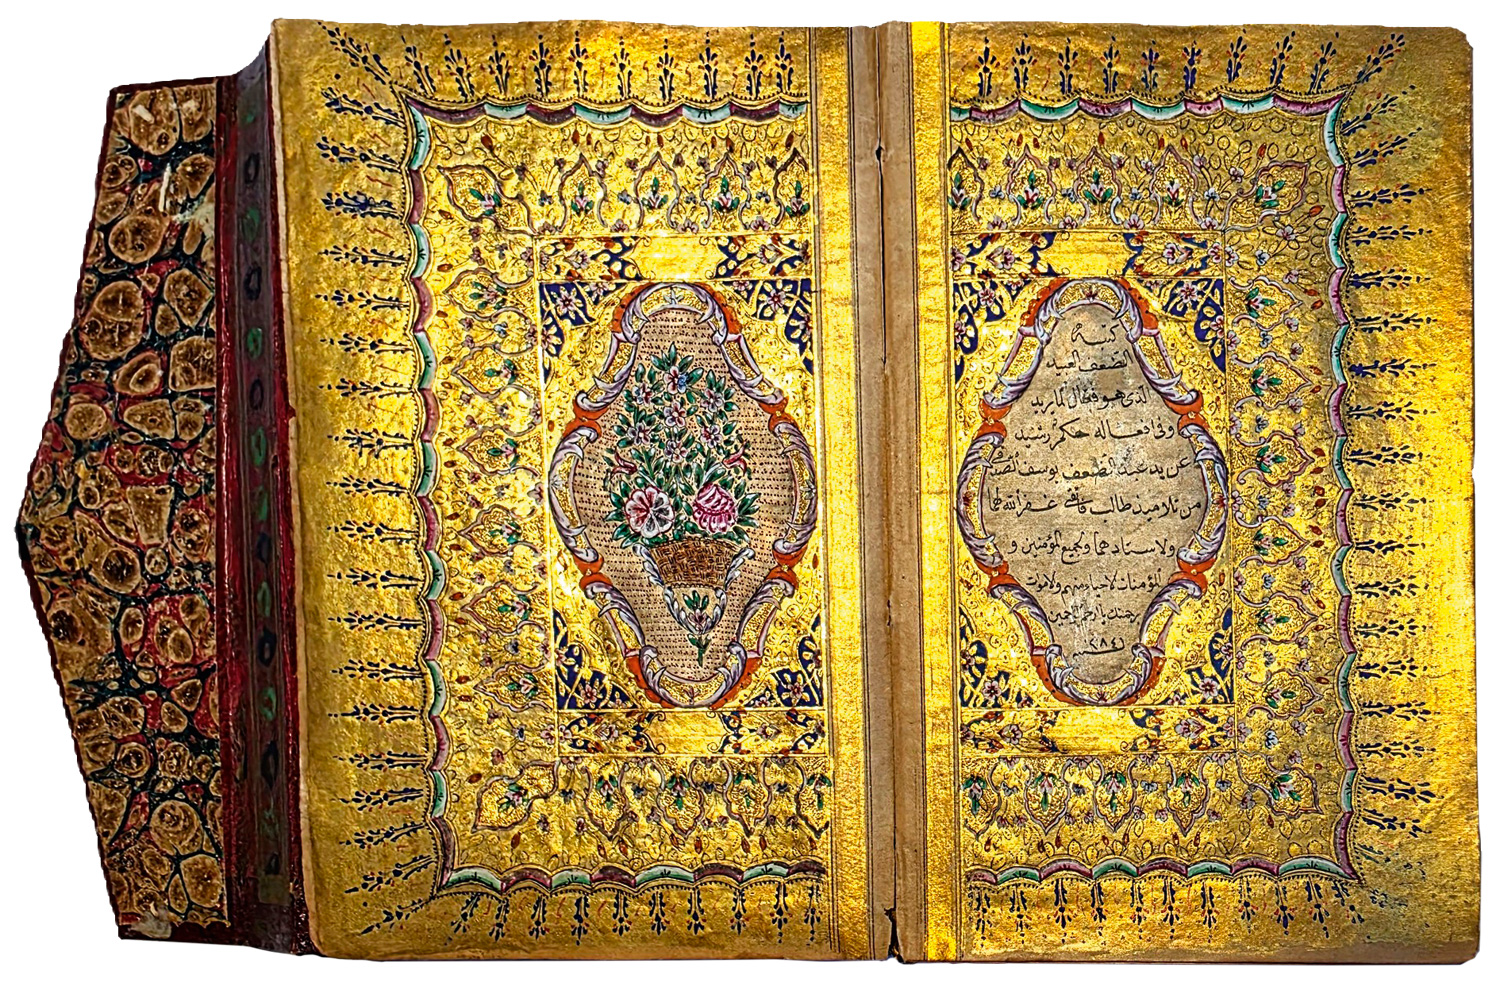 كتبه
الضعف العبيد
الذى هو فعال لما يريد
وفى افعاله حكم رشيد
عن يد عبد الضعيف يوسف
من تلاميذ طالب غفر الله لهما
ولاستادهما ولجميع المؤمنين و
المؤمنات الاحياء منهم والاموات
برحمتك يا ارحم الراحمين